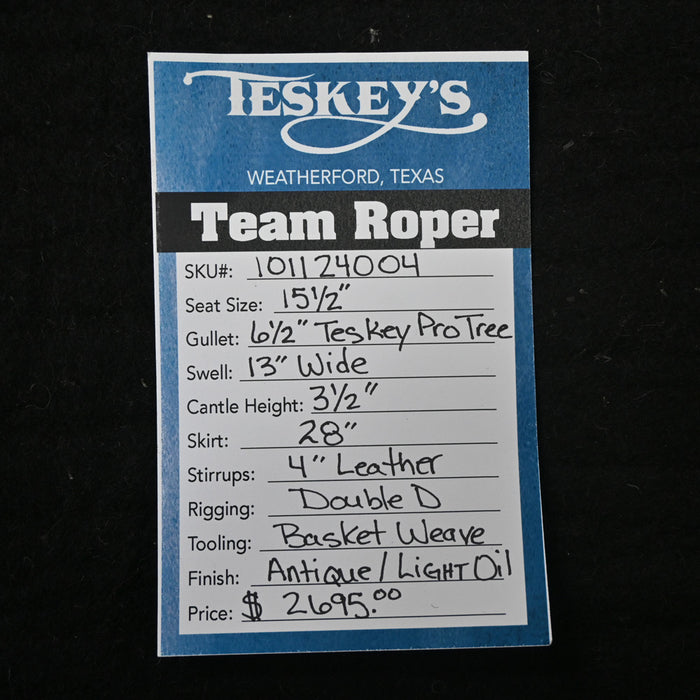 TESKEY'S
WEATHERFORD, TEXAS
Team Roper
SKU#: 101124004
Seat Size: 15½"
Gullet: 6½" Teskey Pro Tree
Swell: 13" Wide
Cantle Height: 3½"
Skirt: 28"
Stirrups: 4" Leather
Rigging: Double D
Tooling: Basket Weave
Finish: Antique/LIGHT Oil
Price: $ 2695.00